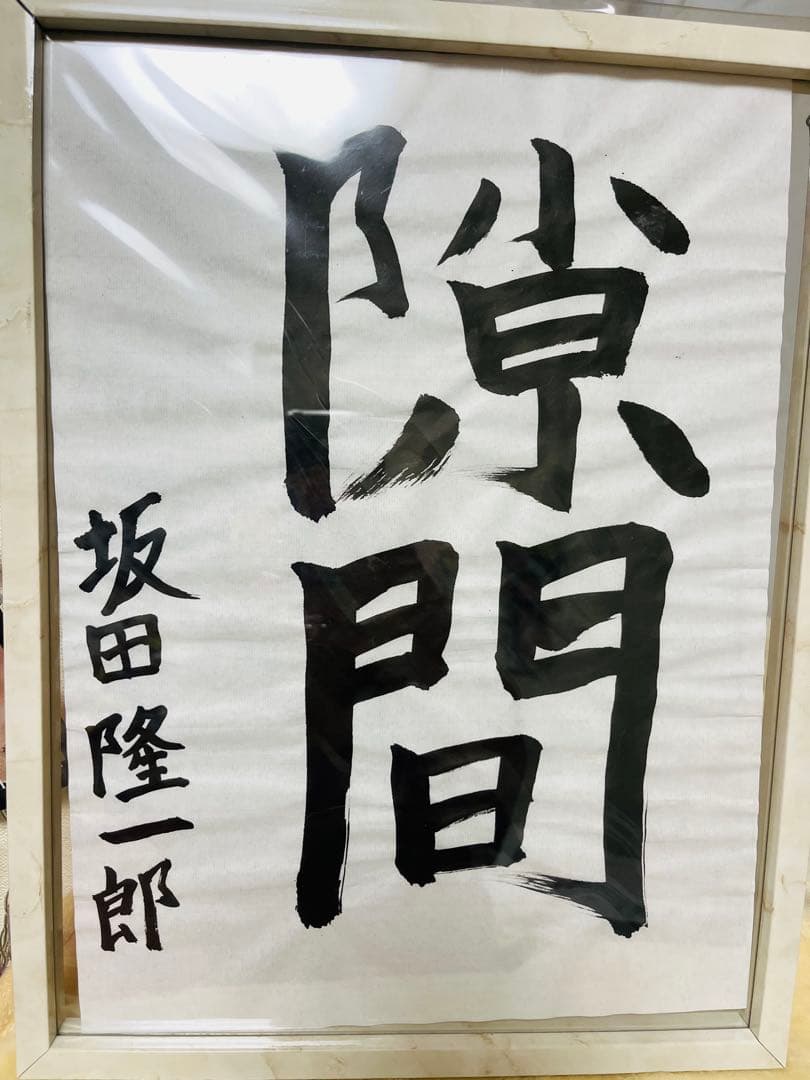 隙間
坂田隆一郎